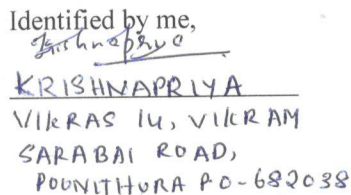 Identified by me,
Krishnapriya
KRISHNAPRIYA
VIKRAS 14, VIKRAM
SARABAI ROAD,
POONITHURA PO-682038